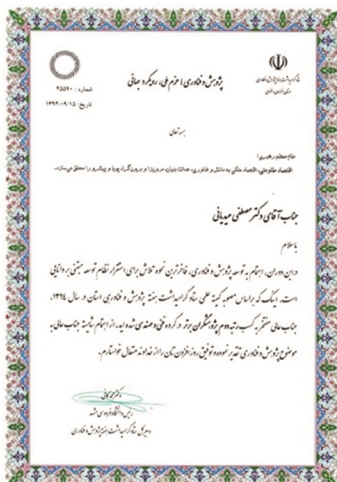 پژوهش و فناوری؛ عزم ملی، رویکرد جهانی
شماره: ۴۵۵۹۰
تاریخ: ۱۳۹۴/۰۹/۱۵
بسمه تعالی
مقام معظم رهبری:
اقتصاد مقاومتی، اقتصاد متکی به دانش و فناوری، عدالت بنیان، درون‌زا و برون‌گرا، پویا و پیشرو را محقق می‌سازد.
جناب آقای دکتر مصطفی میدیانی
با سلام
در این دوران، اهتمام به توسعه پژوهش و فناوری، فاخرترین نحوه تلاش برای استقرار نظام توسعه مبتنی بر دانایی
است. اینک که براساس مصوبه کمیته علمی ستاد گرامیداشت هفته پژوهش و فناوری استان در سال ۱۳۹۴،
جناب عالی مفتخر به کسب رتبه دوم پژوهشگران برتر در گروه فنی و مهندسی شده‌اید، از اهتمام شایسته جناب عالی به
موضوع پژوهش و فناوری تقدیر نموده و توفیق روزافزون تان را از خداوند متعال خواستارم.
رئیس دانشگاه فردوسی مشهد
و دبیر کل ستاد گرامیداشت هفته پژوهش و فناوری